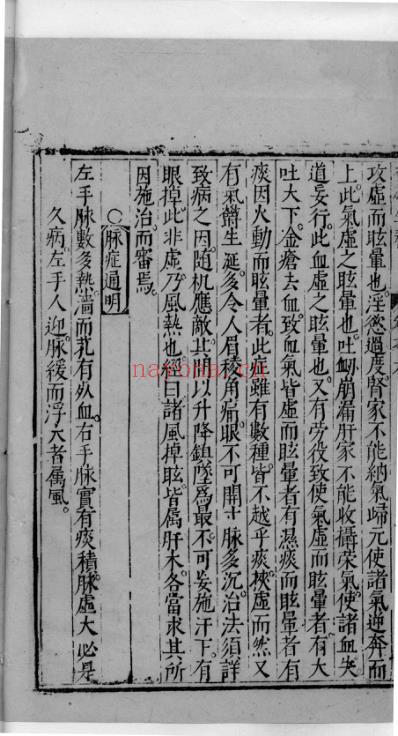 攻虛而眩暈也淫慾過度腎家不能納氣歸元使諸氣逆奔而
上此氣虛之眩暈也吐衂崩漏肝家不能收攝榮氣使諸血失
道妄行此血虛之眩暈也又有劳役致使氣虛而眩暈者有大
吐大下金瘡去血致血氣皆虛而眩暈者有濕痰而眩暈者有
痰因火動而眩暈者此症雖有數種皆不越乎痰挾虛而然又
有氣欝生涎多令人眉稜角痛眼不可開寸脉多沉治法須詳
致病之因随机應敵其間以升降鎮墜為最不可妄施汗下有
眼掉此非虛乃風熱也經曰諸風掉眩皆属肝木各當求其所
因施治而審焉
○脉症通明
左手脉數多熱濇而芤有血右手脉實有痰積脉虛大必是
久病左手人迎脉緩而浮大者属風
nayona.cn